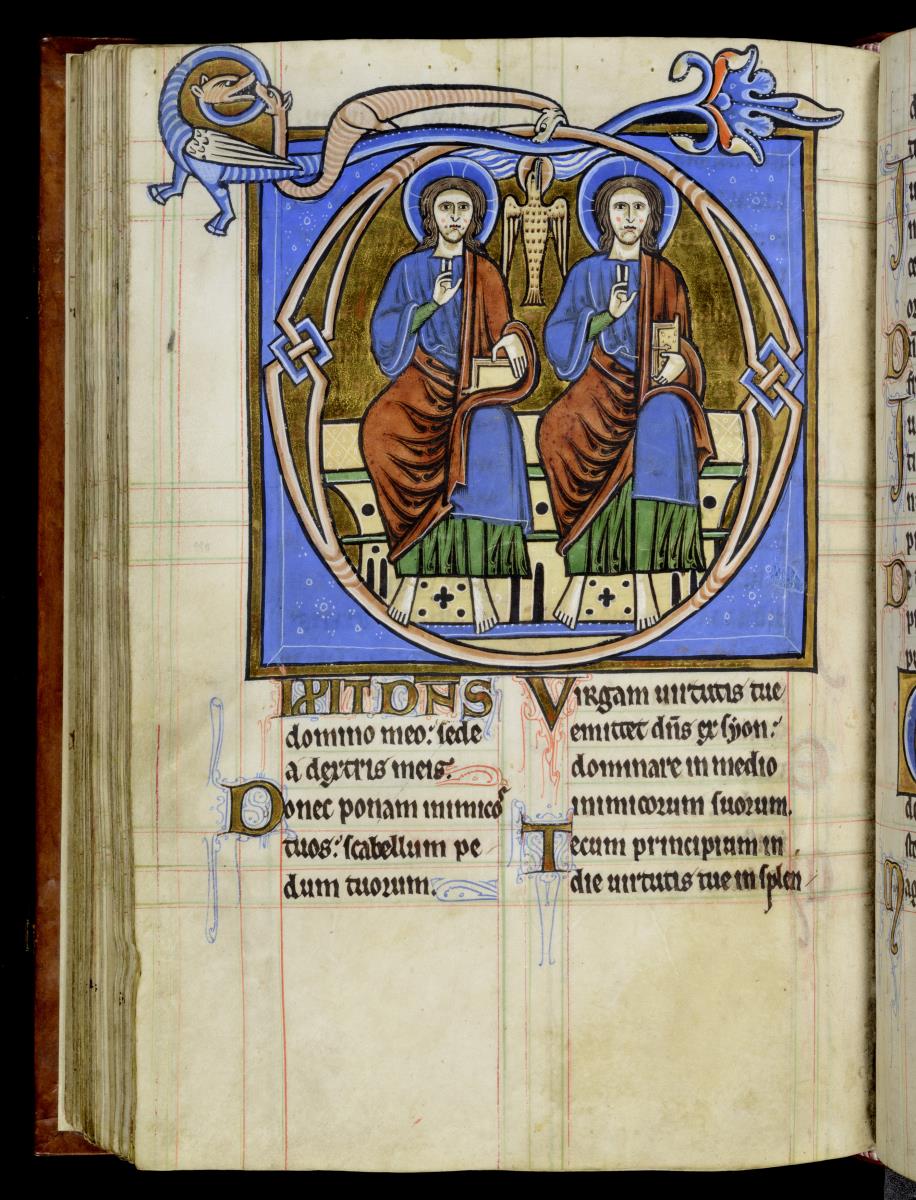 DIXIT DŃS
domino meo: sede
a dextris meis.
Donec ponam inimicoˢ
tuos: scabellum pe
dum tuorum.
Virgam uirtutis tue
emittet dn̄s ex syon:
dominare in medio
inimicorum suorum.
Tecum principium in
die uirtutis tue in splen